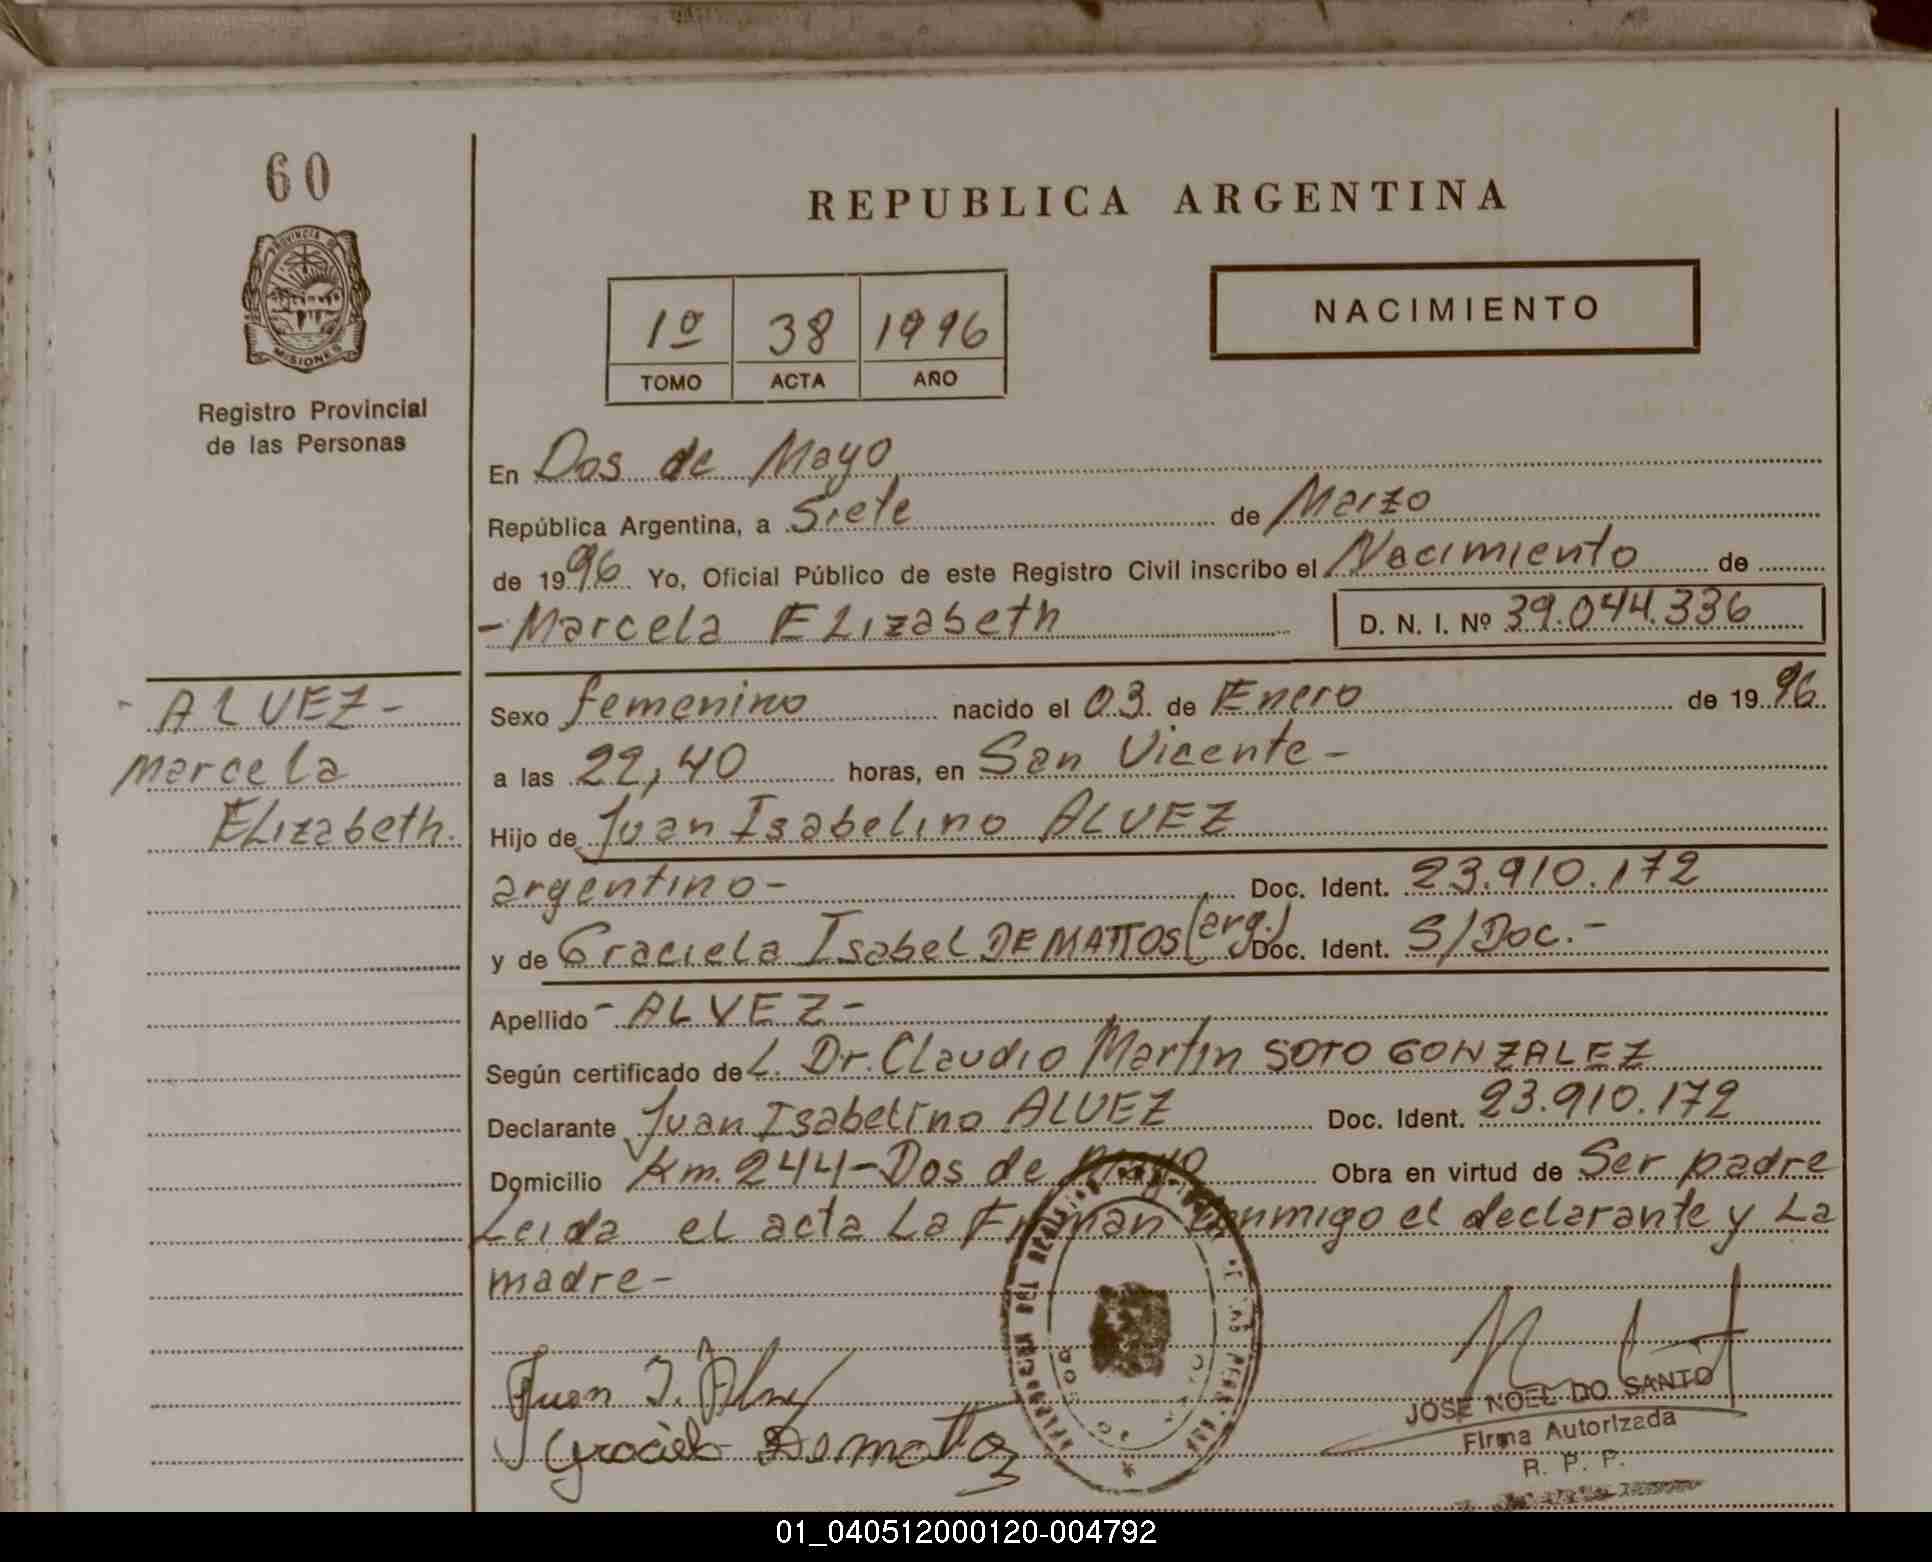 60
PROVINCIA DE
MISIONES
Registro Provincial
de las Personas
REPUBLICA ARGENTINA
1º 38 1996
TOMO ACTA AÑO
NACIMIENTO
En Dos de Mayo
República Argentina, a Siete de Marzo
de 1996 Yo, Oficial Público de este Registro Civil inscribo el Nacimiento de
- Marcela Elizabeth D. N. I. Nº 39.044.336
- ALVEZ -
Marcela
Elizabeth.
Sexo femenino nacido el 03 de Enero de 1996
a las 22,40 horas, en San Vicente -
Hijo de Juan Isabelino ALVEZ
argentino - Doc. Ident. 23.910.172
y de Graciela Isabel DE MATTOS (arg.) Doc. Ident. S/Doc. -
Apellido - ALVEZ -
Según certificado de L. Dr. Claudio Martin SOTO GONZALEZ
Declarante Juan Isabelino ALVEZ Doc. Ident. 23.910.172
Domicilio Km. 244 - Dos de Mayo Obra en virtud de Ser padre
Leida el acta La Firman conmigo el declarante y La
madre -
Juan I. Alvez
Graciela Demattos
JOSE NOEL DO SANTO
Firma Autorizada
R. P. P.
01_040512000120-004792